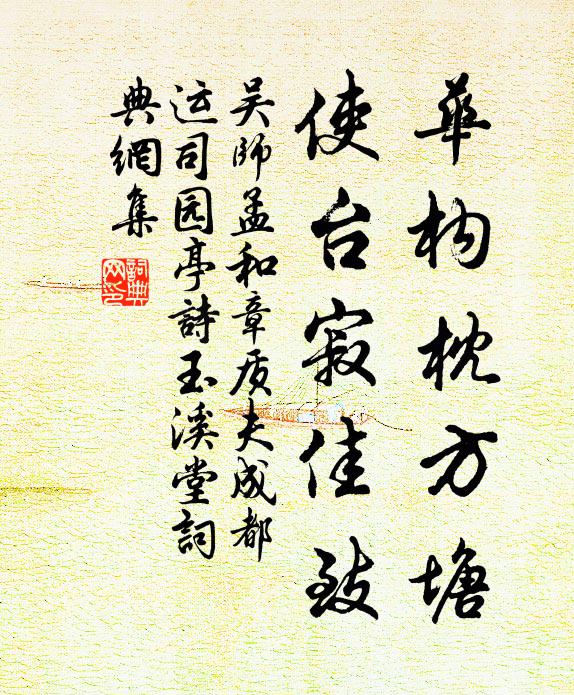 華构枕方塘
使台寂佳致
吴師孟和章质夫成都
运司园亭詩玉溪堂詞
典網集
詞典
网印